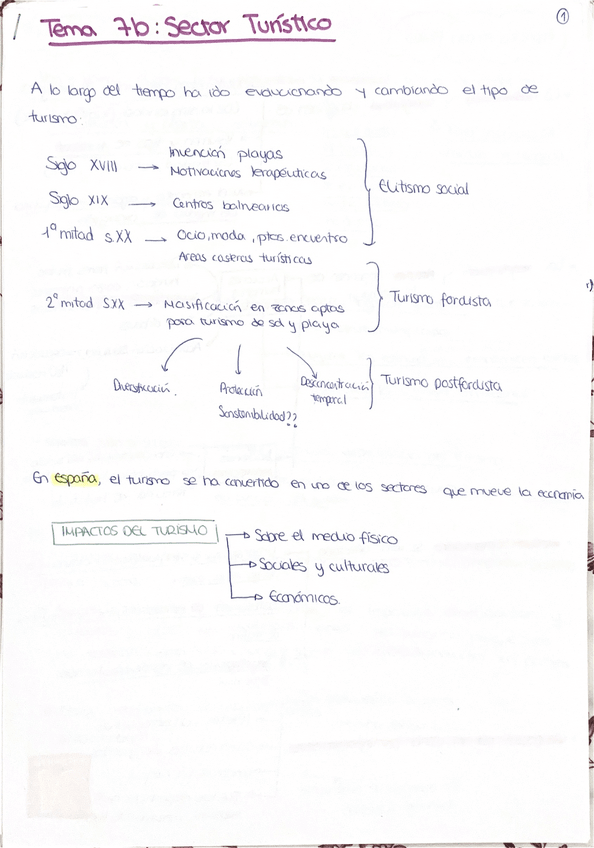 1
Tema 7b: Sector Turístico
A lo largo del tiempo ha ido evolucionando y cambiando el tipo de
turismo:
Siglo XVIII → Invención playas
Motivaciones terapéuticas
Siglo XIX → Centros balnearios
1ª mitad s.XX → Ocio, moda, ptos. encuentro
Areas costeras turísticas
Elitismo social
2ª mitad SXX → Masificación en zonas aptas
para turismo de sol y playa
Turismo fordista
Diversificación.
Protección
Sonstenibilidad??
Desconcentración
temporal
Turismo postfordista
En españa, el turismo se ha convertido en uno de los sectores que mueve la economía
IMPACTOS DEL TURISMO
Sobre el medio físico
Sociales y culturales
Económicos.